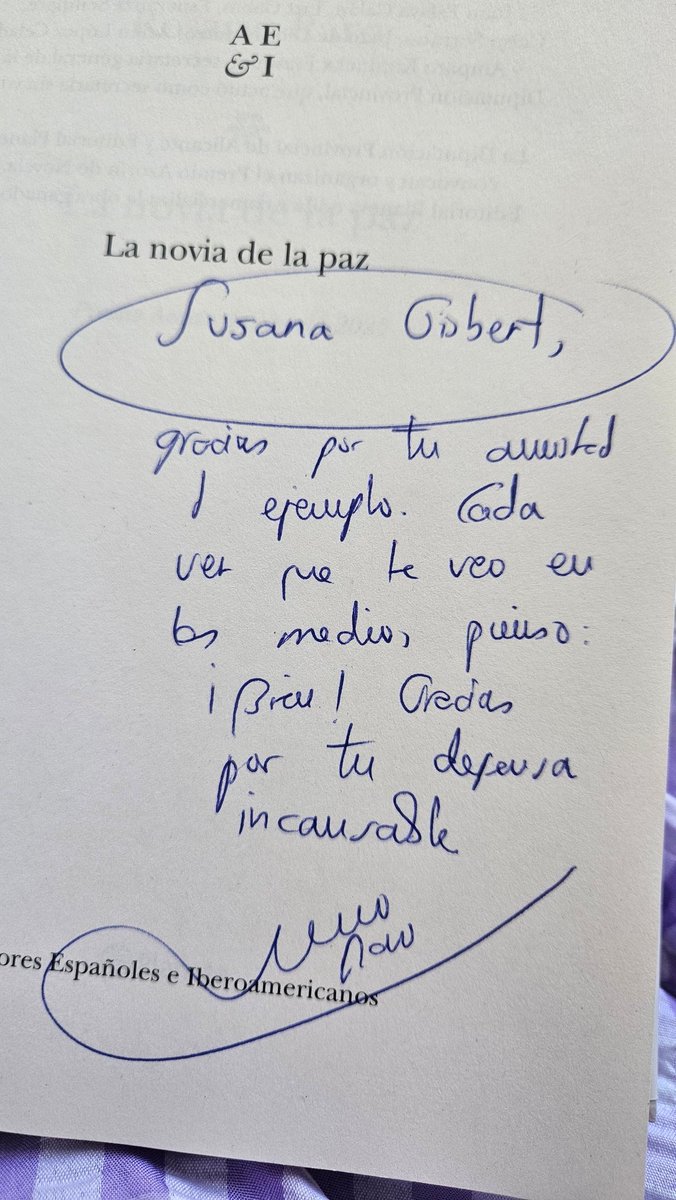 A E
& I
La novia de la paz
Susana Gisbert,
gracias por tu amistad
y ejemplo. Cada
vez que te veo en
los medios, pienso:
¡Bien! Gracias
por tu defensa
incansable
ores Españoles e Iberoamericanos